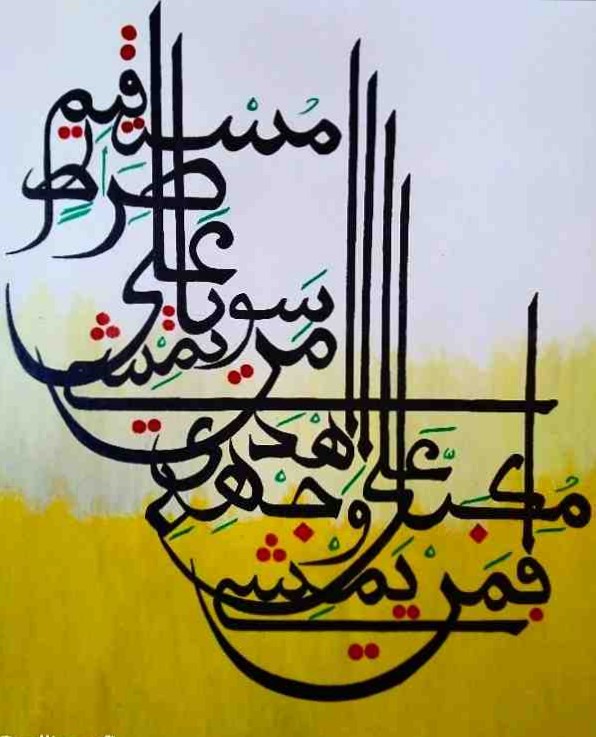 أفمن يمشي
مكبا على وجهه
أهدى
أمن يمشي
سويا
على
صراط
مستقيم